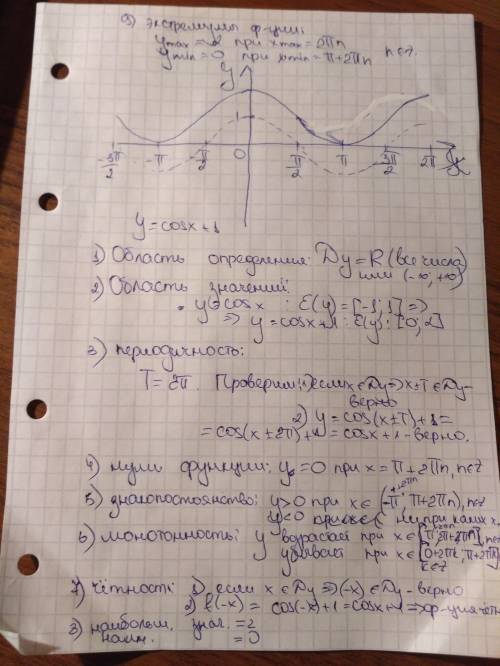 9) экстремумы ф-ции:
y max = 2 при x max = 2πn
y min = 0 при x min = π+2πn n∈Z
y
1
-3π/2 -π -π/2 0 π/2 π 3π/2 2π x
y = cosx + 1
1) Область определения: Dy = R (все числа)
или (-∞; +∞)
2) Область значений:
y = cosx : E(y) = [-1; 1] =>
=> y = cosx+1 : E(y): [0; 2]
3) периодичность:
T = 2π. Проверим: 1) если x ∈ Dy => x±T ∈ Dy -
верно
2) y = cos(x±T)+1 =
= cos(x±2π)+1 = cosx+1 - верно.
4) нули функции: y = 0 при x = π + 2πn, n∈Z
5) знакопостоянство: y>0 при x∈ (-π+2πn; π+2πn), n∈Z
y<0 ни при каких x
6) монотонность: y возрастает при x∈ [π+2πn; 2π+2πn], n∈Z
убывает при x∈ [0+2πk; π+2πk]
k∈Z
7) чётность: 1) если x ∈ Dy => (-x) ∈ Dy - верно
2) f(-x) = cos(-x)+1 = cosx+1 => ф-ция чётн
8) наибольш. знач. = 2
наим. = 0